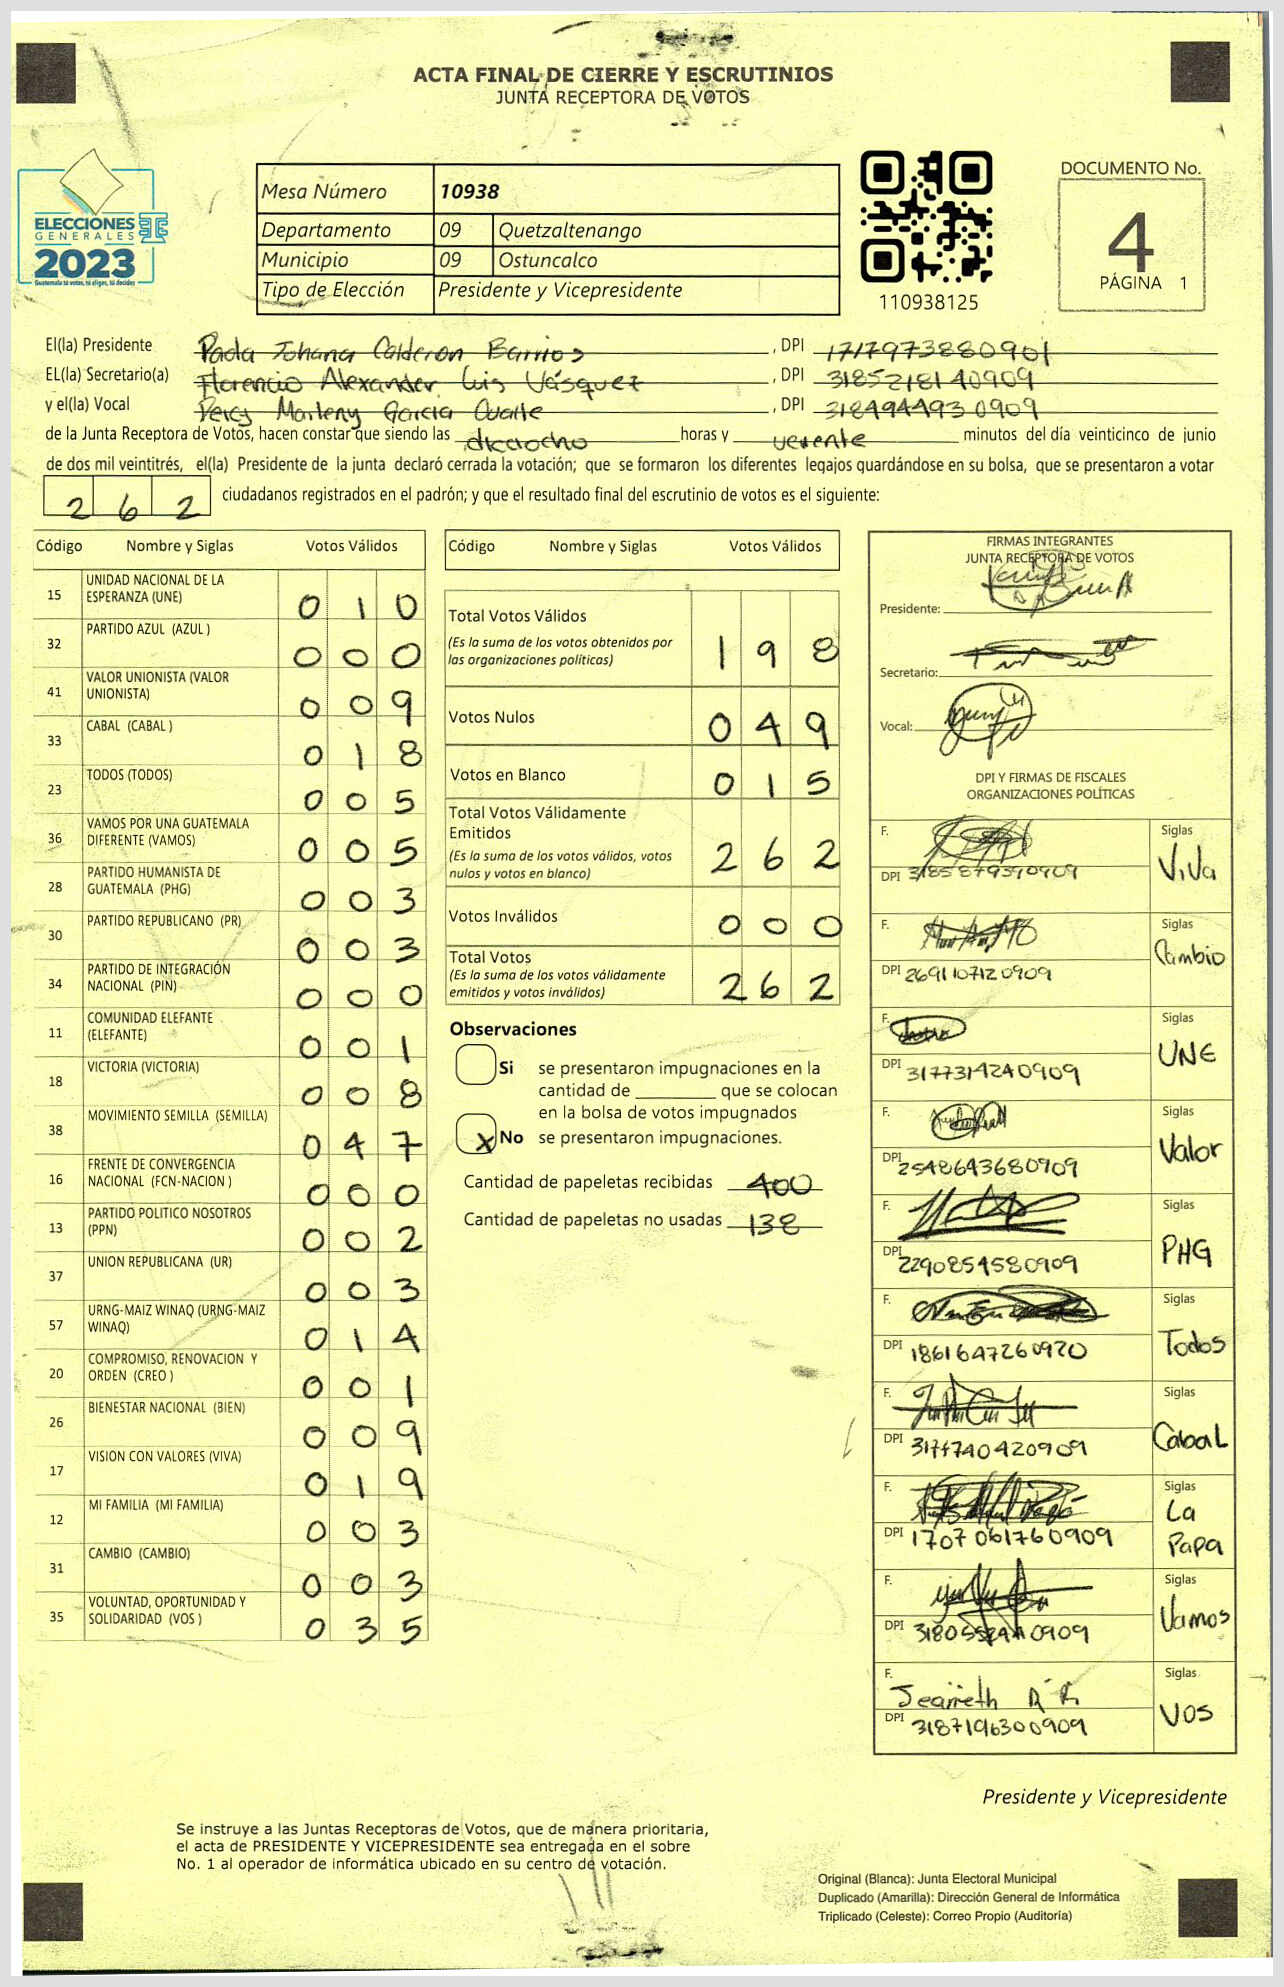 ACTA FINAL DE CIERRE Y ESCRUTINIOS
JUNTA RECEPTORA DE VOTOS
ELECCIONES
GENERALES
2023
Guatemala tú votas, tú eliges, tú decides
Mesa Número 10938
Departamento 09 Quetzaltenango
Municipio 09 Ostuncalco
Tipo de Elección Presidente y Vicepresidente
110938125
DOCUMENTO No.
4
PÁGINA 1
El(la) Presidente Paola Johana Calderon Barrios , DPI 1717973880901
EL(la) Secretario(a) Florencio Alexander Luis Vásquez , DPI 3185218140909
y el(la) Vocal Percy Marleny Garcia , DPI 3184944930909
de la Junta Receptora de Votos, hacen constar que siendo las dieciocho horas y veinte minutos del día veinticinco de junio
de dos mil veintitrés, el(la) Presidente de la junta declaró cerrada la votación; que se formaron los diferentes legajos guardándose en su bolsa, que se presentaron a votar
262 ciudadanos registrados en el padrón; y que el resultado final del escrutinio de votos es el siguiente:
Código Nombre y Siglas Votos Válidos
15 UNIDAD NACIONAL DE LA
ESPERANZA (UNE) 0 1 0
32 PARTIDO AZUL (AZUL ) 0 0 0
41 VALOR UNIONISTA (VALOR
UNIONISTA) 0 0 9
33 CABAL (CABAL ) 0 1 8
23 TODOS (TODOS) 0 0 5
36 VAMOS POR UNA GUATEMALA
DIFERENTE (VAMOS) 0 0 5
28 PARTIDO HUMANISTA DE
GUATEMALA (PHG) 0 0 3
30 PARTIDO REPUBLICANO (PR) 0 0 3
34 PARTIDO DE INTEGRACIÓN
NACIONAL (PIN) 0 0 0
11 COMUNIDAD ELEFANTE
(ELEFANTE) 0 0 1
18 VICTORIA (VICTORIA) 0 0 8
38 MOVIMIENTO SEMILLA (SEMILLA) 0 4 7
16 FRENTE DE CONVERGENCIA
NACIONAL (FCN-NACION ) 0 0 0
13 PARTIDO POLITICO NOSOTROS
(PPN) 0 0 2
37 UNION REPUBLICANA (UR) 0 0 3
57 URNG-MAIZ WINAQ (URNG-MAIZ
WINAQ) 0 1 4
20 COMPROMISO, RENOVACION Y
ORDEN (CREO ) 0 0 1
26 BIENESTAR NACIONAL (BIEN) 0 0 9
17 VISION CON VALORES (VIVA) 0 1 9
12 MI FAMILIA (MI FAMILIA) 0 0 3
31 CAMBIO (CAMBIO) 0 0 3
35 VOLUNTAD, OPORTUNIDAD Y
SOLIDARIDAD (VOS ) 0 3 5
Código Nombre y Siglas Votos Válidos
Total Votos Válidos
(Es la suma de los votos obtenidos por
las organizaciones políticas) 1 9 8
Votos Nulos 0 4 9
Votos en Blanco 0 1 5
Total Votos Válidamente
Emitidos
(Es la suma de los votos válidos, votos
nulos y votos en blanco) 2 6 2
Votos Inválidos 0 0 0
Total Votos
(Es la suma de los votos válidamente
emitidos y votos inválidos) 2 6 2
Observaciones
Si se presentaron impugnaciones en la
cantidad de ________ que se colocan
en la bolsa de votos impugnados
x No se presentaron impugnaciones.
Cantidad de papeletas recibidas 400
Cantidad de papeletas no usadas 138
FIRMAS INTEGRANTES
JUNTA RECEPTORA DE VOTOS
Presidente:
Secretario:
Vocal:
DPI Y FIRMAS DE FISCALES
ORGANIZACIONES POLÍTICAS
F. Siglas
DPI 3185879390909 ViVa
F. Siglas
DPI 2691107120909 Cambio
F. Siglas
DPI 3177314240909 UNE
F. Siglas
DPI 2548643680909 Valor
F. Siglas
DPI 2290854580909 PHG
F. Siglas
DPI 1861647260920 Todos
F. Siglas
DPI 317740420909 CabaL
F. Siglas
DPI 1707061760909 La Papa
F. Siglas
DPI Vamos
F. Siglas
DPI 3187196300909 VOS
Presidente y Vicepresidente
Se instruye a las Juntas Receptoras de Votos, que de manera prioritaria,
el acta de PRESIDENTE Y VICEPRESIDENTE sea entregada en el sobre
No. 1 al operador de informática ubicado en su centro de votación.
Original (Blanca): Junta Electoral Municipal
Duplicado (Amarilla): Dirección General de Informática
Triplicado (Celeste): Correo Propio (Auditoría)